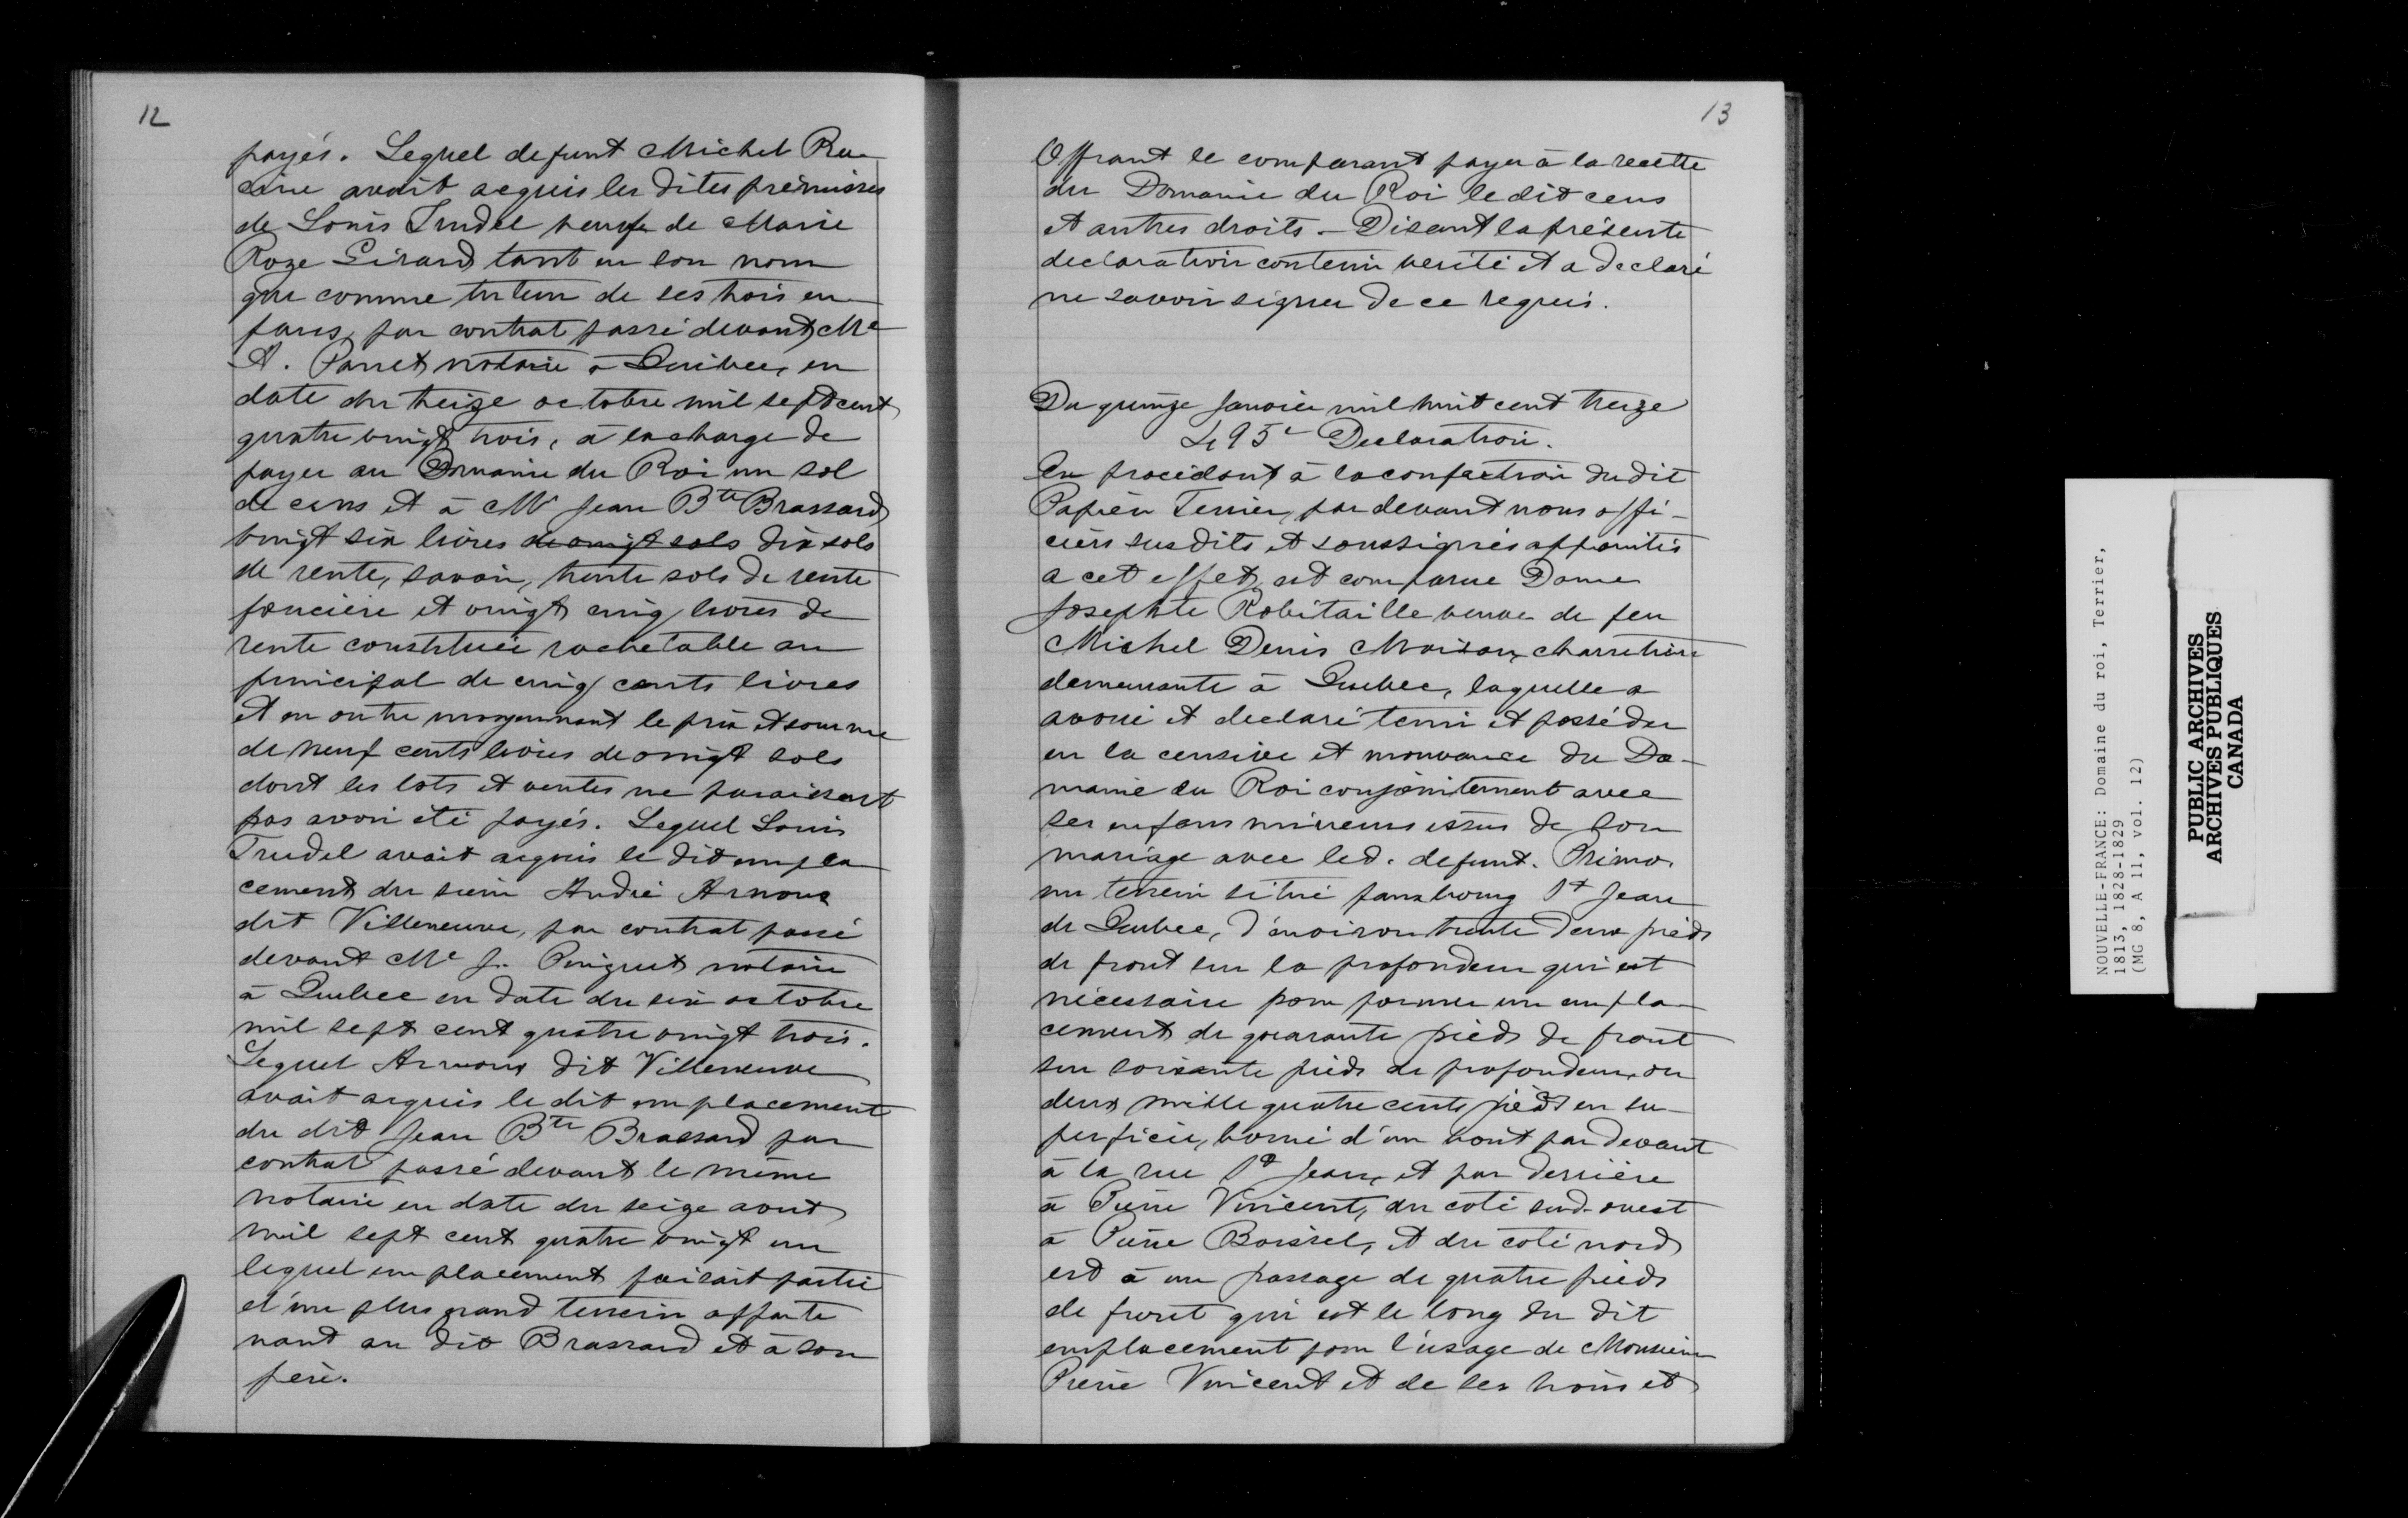 12
payés. Lequel defunt Michel Ra-
cine avait acquis les dites prémisses
de Louis Trudel veuf de Marie
Roze Girard tant en son nom
que comme tuteur de ses trois en-
fans, par contrat passé devant Me
A. Panet notaire à Quebec, en
date du treize octobre mil sept cent
quatre vingt trois, à la charge de
payer au Domaine du Roi un sol
de cens et à Mr Jean Bte Brassard
vingt six livres de vingt sols dix sols
de rente, savoir, trente sols de rente
foncière et vingt cinq livres de
rente constituée rachetable au
principal de cinq cents livres
et en outre moyennant le prix et somme
de neuf cents livres de vingt sols
dont les lots et ventes ne paraissent
pas avoir été payés. Lequel Louis
Trudel avait acquis le dit empla
cement du sieur André Arnoux
dit Villeneuve, par contrat passé
devant Me J. Pinguet notaire
à Quebec en date du six octobre
mil sept cent quatre vingt trois.
Lequel Arnoux dit Villeneuve
avait acquis le dit emplacement
du dit Jean Bte Brassard par
contrat passé devant le même
notaire en date du seize aout
mil sept cent quatre vingt un
lequel emplacement faisait partie
d'une plus grand terrein apparte
nant au dit Brassard et à son
père.
13
Offrant le comparant payer à la recette
du Domaine du Roi le dit cens
et autres droits. - Disant la présente
declaration contenir verité et a declaré
ne savoir signer de ce requis.
Du quinze Janvier mil huit cent treize
495e Declaration.
En procédant à la confection du dit
Papier Terrier, par devant nous offi-
ciers susdits et soussignés appointés
a cet effet, est comparue Dame
Josephte Robitaille veuve de feu
Michel Denis Moisan, charretier
demeurante à Quebec, laquelle a
avoué et declaré tenir et posséder
en la censive et mouvance du Do-
maine du Roi conjointement avec
ses enfans mineurs issus de son
mariage avec led. defunt. Primo.
un terrein situé fauxbourg St Jean
de Quebec, d'environ trente deux pieds
de front sur la profondeur qui est
nécessaire pour former un empla-
cement de quarante pieds de front
sur soixante pieds de profondeur, ou
deux mille quatre cents pieds en su-
perficie, borné d'un bout par devant
à la rue St Jean, et par derrière
à Pierre Vincent, du coté sud-ouest
à Pierre Boissel, et du coté nord
est à un passage de quatre pieds
de front qui est le long du dit
emplacement pour l'usage de Monsieur
Pierre Vincent et de ses hoirs et
NOUVELLE-FRANCE: Domaine du roi, Terrier,
1813, 1828-1829
(MG 8, A 11, vol. 12)
PUBLIC ARCHIVES
ARCHIVES PUBLIQUES
CANADA